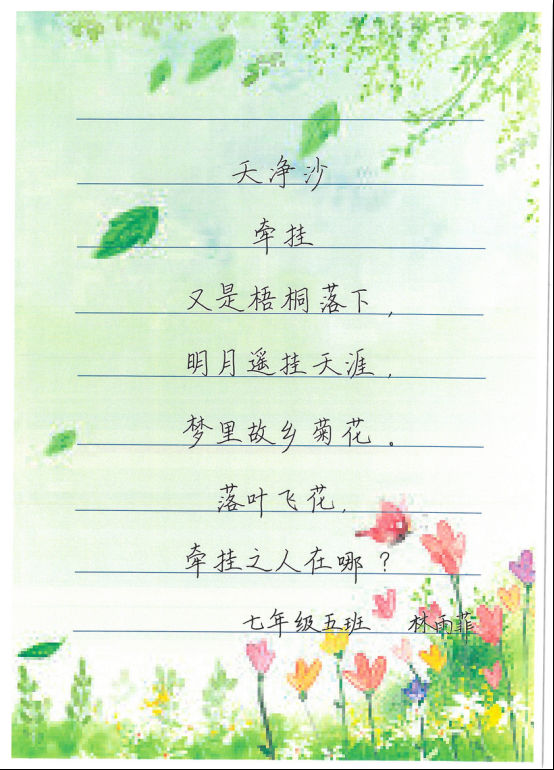 天净沙
牵挂
又是梧桐落下，
明月遥挂天涯，
梦里故乡菊花。
落叶飞花，
牵挂之人在哪？
七年级五班 林雨菲